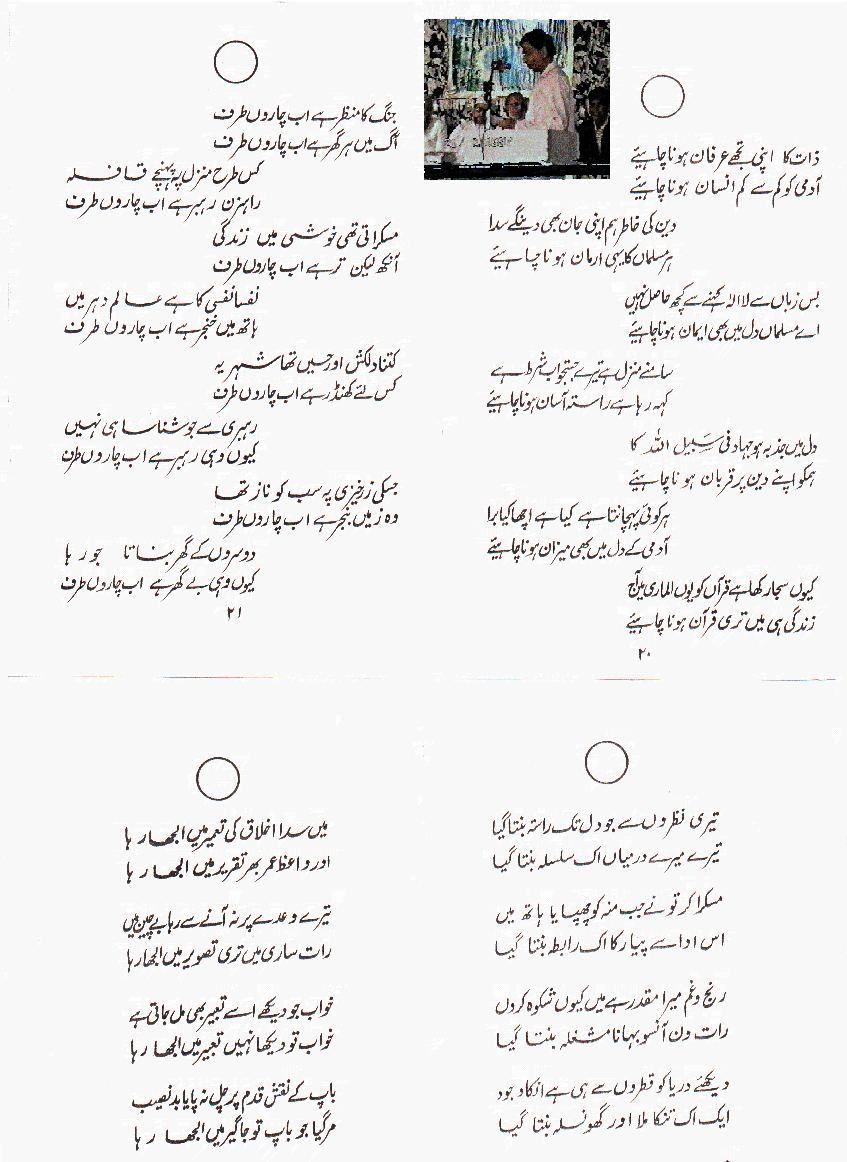 ذات کا اپنی تجھے عرفان ہونا چاہیئے
آدمی کو کم سے کم انسان ہونا چاہیئے
دین کی خاطر ہم اپنی جان بھی دینگے سدا
ہر مسلماں کا یہی ارمان ہونا چاہیئے
بس زباں سے لا الہ کہنے سے کچھ حاصل نہیں
اے مسلماں دل میں بھی ایمان ہونا چاہیئے
سامنے منزل ہے تیرے جستجو اب شرط ہے
کہہ رہا ہے راستہ آسان ہونا چاہیئے
دل میں جذبہ ہو جہاد فی سَبِیل اللہ کا
ہمکو اپنے دین پر قربان ہونا چاہیئے
ہر کوئی پہچانتا ہے کیا ہے اچھا کیا برا
آدمی کے دل میں بھی میزان ہونا چاہیئے
کیوں سجا رکھا ہے قرآں کو یوں الماری میں آج
زندگی ہی میں تری قرآن ہونا چاہیئے
۲۰
جنگ کا منظر ہے اب چاروں طرف
آگ میں ہر گھر ہے اب چاروں طرف
کس طرح منزل پہ پہنچے قافلہ
راہزن رہبر ہے اب چاروں طرف
مسکراتی تھی خوشی میں زندگی
آنکھ لیکن تر ہے اب چاروں طرف
نفسا نفسی کا ہے عالم دہر میں
ہاتھ میں خنجر ہے اب چاروں طرف
کتنا دلکش اور حسیں تھا شہر یہ
کس لئے کھنڈر ہے اب چاروں طرف
رہبری سے جو شناسا ہی نہیں
کیوں وہی رہبر ہے اب چاروں طرف
جسکی زرخیزی پہ سب کو ناز تھا
وہ زمیں بنجر ہے اب چاروں طرف
دوسروں کے گھر بناتا جو رہا
کیوں وہی بے گھر ہے اب چاروں طرف
۲۱
تیری نظروں سے جو دل تک راستہ بنتا گیا
تیرے میرے درمیاں اک سلسلہ بنتا گیا
مسکرا کر تو نے جب منہ کو چھپایا ہاتھ میں
اس ادا سے پیار کا اک رابطہ بنتا گیا
رنج و غم میرا مقدر ہے میں کیوں شکوہ کروں
رات دن آنسو بہانا مشغلہ بنتا گیا
دیکھئے دریا کو قطروں سے ہی ہے انکا وجود
ایک اک تنکا ملا اور گھونسلہ بنتا گیا
میں سدا اخلاق کی تعمیر میں الجھا رہا
اور واعظ عمر بھر تقریر میں الجھا رہا
تیرے وعدے پر نہ آنے سے رہا بے چین میں
رات ساری میں تری تصویر میں الجھا رہا
خواب جو دیکھے اسے تعبیر بھی مل جاتی ہے
خواب تو دیکھا نہیں تعبیر میں الجھا رہا
باپ کے نقش قدم پر چل نہ پایا بد نصیب
مر گیا جو باپ تو جاگیر میں الجھا رہا